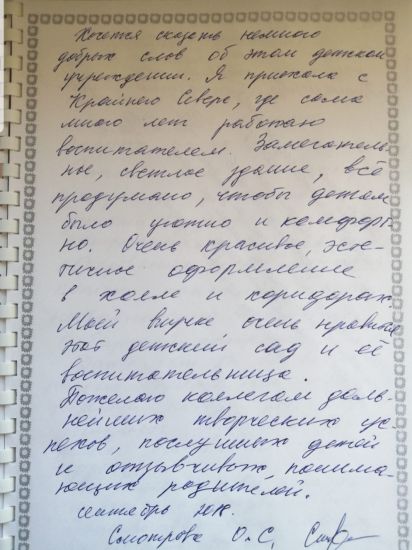 Хочется сказать немного
добрых слов об этом детском
учреждении. Я приехала с
Крайнего Севера, где сама
много лет работаю
воспитателем. Замечатель-
ное, светлое здание, всё
продумано, чтобы детям
было уютно и комфорт-
но. Очень красивое, эсте-
тичное оформление
в холле и коридорах.
Моей внучке очень нравится
этот детский сад и её
воспитательница.
Пожелаю коллегам даль-
нейших творческих ус-
пехов, послушных детей
и отзывчивых, понима-
ющих родителей.
сентябрь
Смотрова О.С.